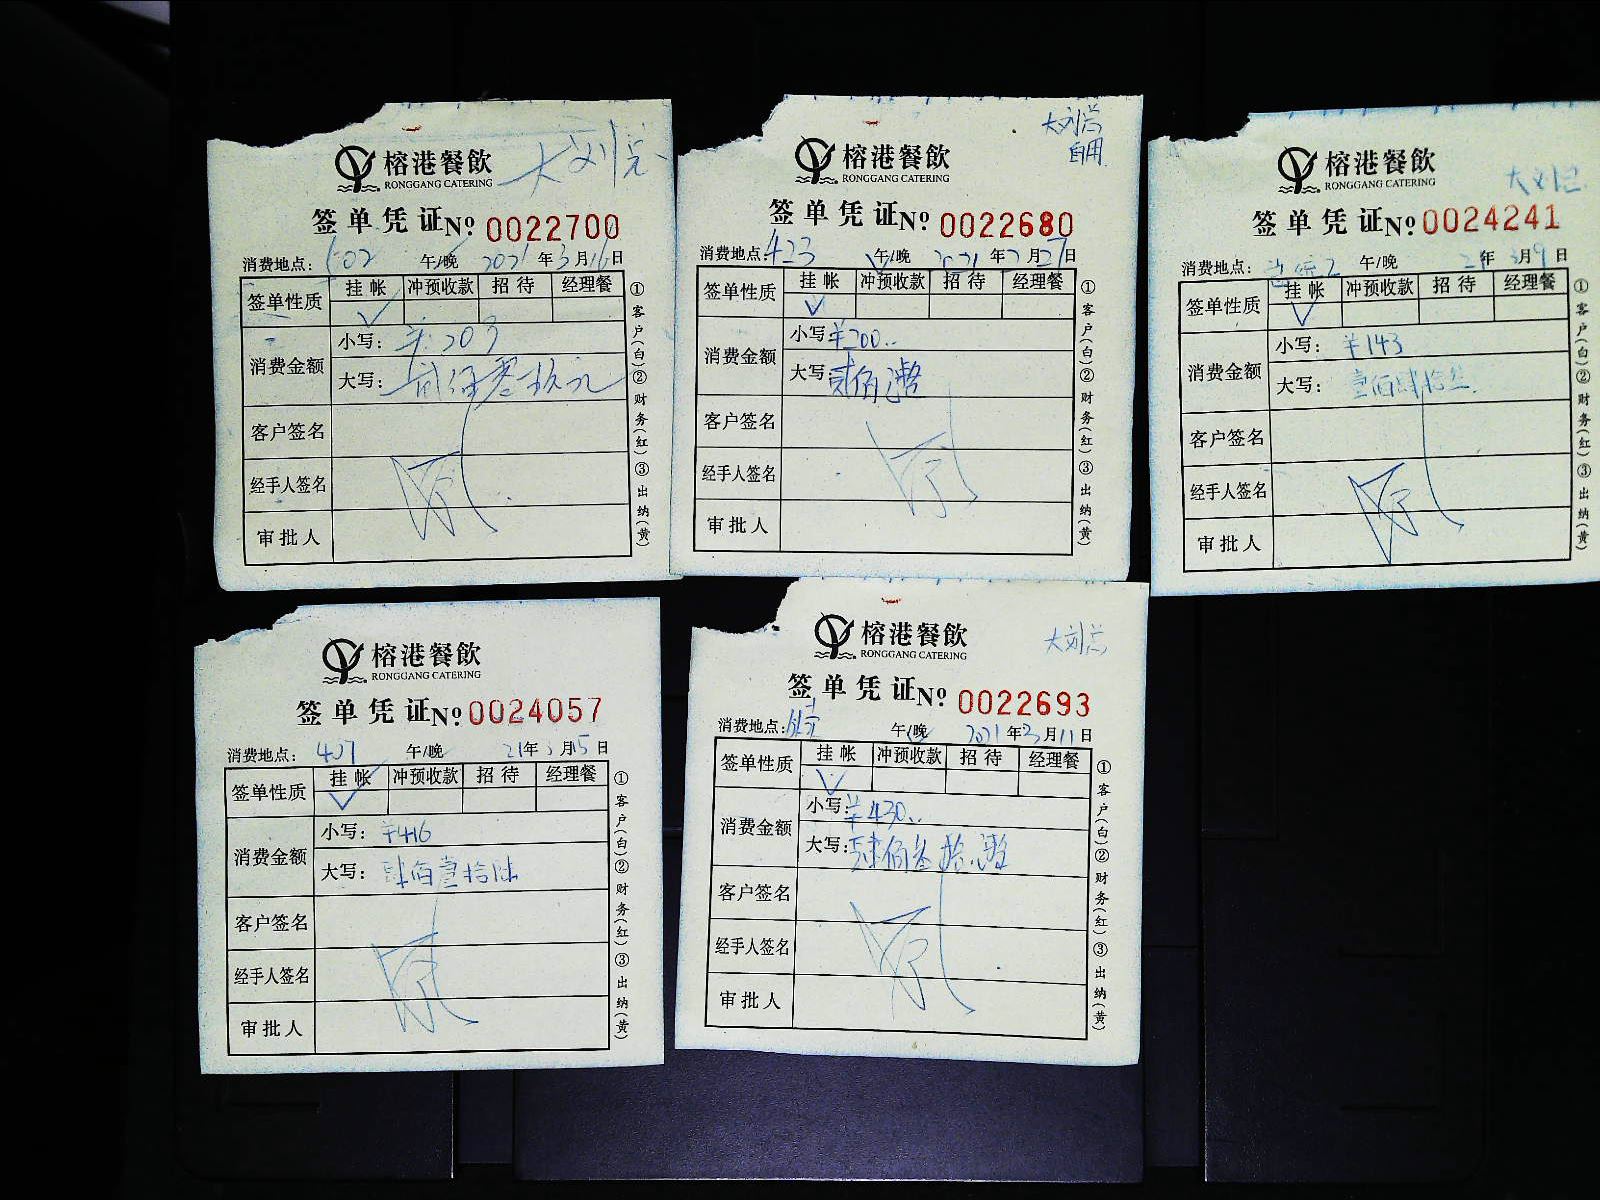 大刘总
榕港餐飲
RONGGANG CATERING
签单凭证 № 0022700
消费地点: 502 午/晚 2021年3月16日
签单性质 挂帐 冲预收款 招待 经理餐
消费金额 小写: ¥:203
大写: 贰佰叁拾元
客户签名
经手人签名
审批人
①客户(白)②财务(红)③出纳(黄)
大刘总
自用
榕港餐飲
RONGGANG CATERING
签单凭证 № 0022680
消费地点: 423 午/晚 2021年2月27日
签单性质 挂帐 冲预收款 招待 经理餐
消费金额 小写: ¥200..
大写: 贰佰元整
客户签名
经手人签名
审批人
①客户(白)②财务(红)③出纳(黄)
大刘总
榕港餐飲
RONGGANG CATERING
签单凭证 № 0024241
消费地点: 午/晚 21年3月9日
签单性质 挂帐 冲预收款 招待 经理餐
消费金额 小写: ¥143
大写: 壹佰肆拾叁
客户签名
经手人签名
审批人
①客户(白)②财务(红)③出纳(黄)
榕港餐飲
RONGGANG CATERING
签单凭证 № 0024057
消费地点: 407 午/晚 21年3月15日
签单性质 挂帐 冲预收款 招待 经理餐
消费金额 小写: ¥416
大写: 肆佰壹拾陆
客户签名
经手人签名
审批人
①客户(白)②财务(红)③出纳(黄)
大刘总
榕港餐飲
RONGGANG CATERING
签单凭证 № 0022693
消费地点: 午/晚 2021年3月11日
签单性质 挂帐 冲预收款 招待 经理餐
消费金额 小写: ¥430..
大写: 肆佰叁拾元整
客户签名
经手人签名
审批人
①客户(白)②财务(红)③出纳(黄)